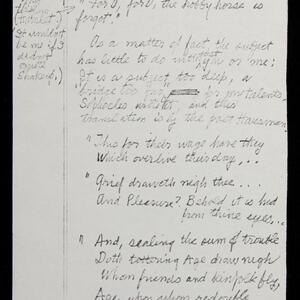 "For O, for O, the hobby horse is
forgot."
(Hamlet.)
It wouldn't
be me if I
didn't
quote
Shakesp.)
As a matter of fact, the subject
has little to do with you or me:
It is a subject too deep, a
bridge too far, for my talents,
Sophocles wrote it, and this
translation is by the poet Housman.
"This for their wage have they
Which overlive their day, ..
"Grief draweth nigh thee ....
And Pleasure? Behold it is hid
from thine eyes...
"And, sealing the sum of trouble
Doth tottering Age draw nigh
Whom friends and kinsfolk fly,
Age, upon whom redouble